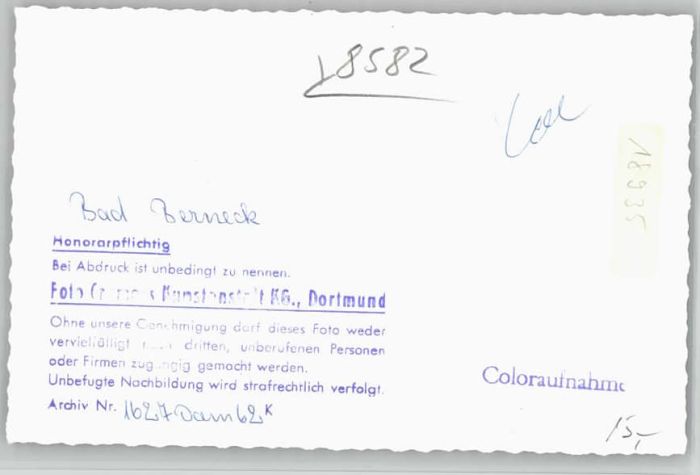 8582
18935
Bad Berneck
Honorarpflichtig
Bei Abdruck ist unbedingt zu nennen.
Foto Kunstanstalt KG., Dortmund
Ohne unsere Genehmigung darf dieses Foto weder
vervielfältigt dritten, unberufenen Personen
oder Firmen zugängig gemacht werden.
Unbefugte Nachbildung wird strafrechtlich verfolgt.
Archiv Nr. 1627 Dam 62 K
Coloraufnahme
15,-